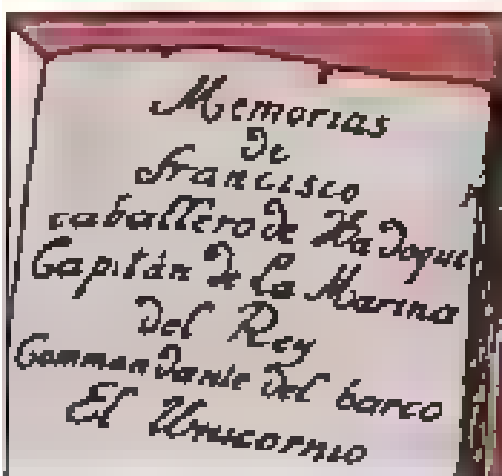 Memorias
de
Francisco
caballero de Hadoque
Capitán de la Marina
del Rey
Commandante del barco
El Unicornio